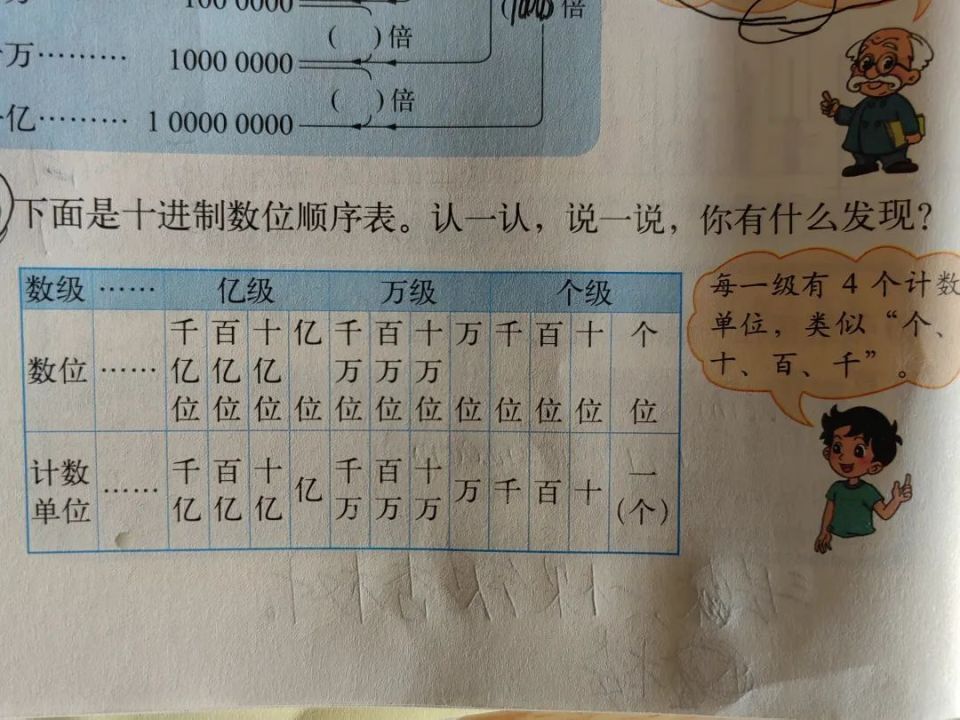 100 0000
( )倍
万……… 1000 0000
( )倍
亿……… 1 0000 0000
倍
下面是十进制数位顺序表。认一认，说一说，你有什么发现？
数级 …… 亿级 万级 个级
数位 …… 千亿位 百亿位 十亿位 亿位 千万位 百万位 十万位 万位 千位 百位 十位 个位
计数单位 …… 千亿 百亿 十亿 亿 千万 百万 十万 万 千 百 十 一(个)
每一级有 4 个计数
单位，类似“个、
十、百、千”。